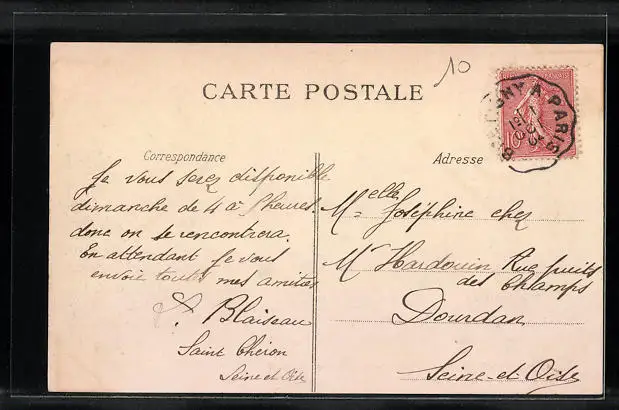 10
CARTE POSTALE
BRETIGNY A PARIS
10
Correspondance
Je vous serez disponible
dimanche de 4 à 5 heures.
donc on se rencontrera.
En attendant je vous
envoie toutes mes amitiés
Blaiseau
Saint Chéron
Seine et Oise
Adresse
Melle Joséphine chez
Mr Hardouin Rue puits
des Champs
Dourdan
Seine et Oise